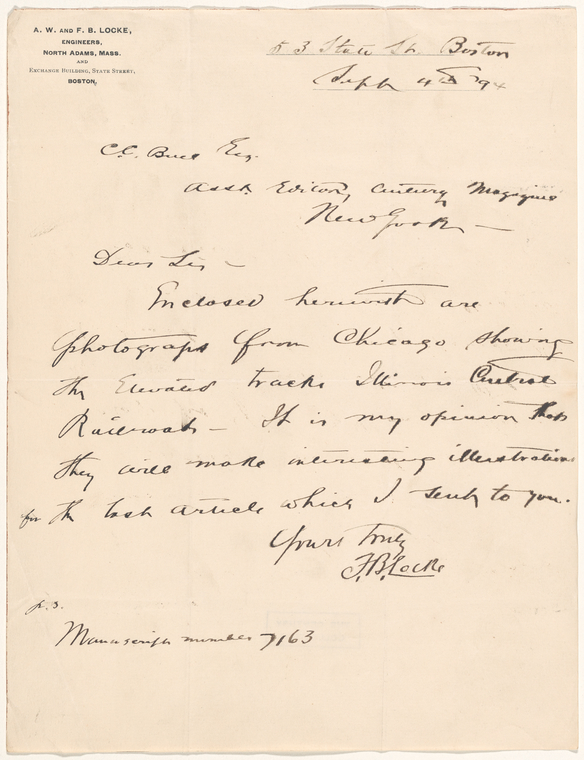 A. W. AND F. B. LOCKE,
ENGINEERS,
NORTH ADAMS, MASS.
AND
EXCHANGE BUILDING, STATE STREET,
BOSTON,
53 State St. Boston
Sept 4th 94
C.C. Buel Esq.
Asst. Editor, Century Magazine
New York
Dear Sir
Enclosed herewith are
photographs from Chicago showing
the Elevated tracks Illinois Central
Railroad - It is my opinion that
they will make interesting illustrations
for the last article which I sent to you.
Yours truly
F.B. Locke
p.s.
Manuscript number 7163